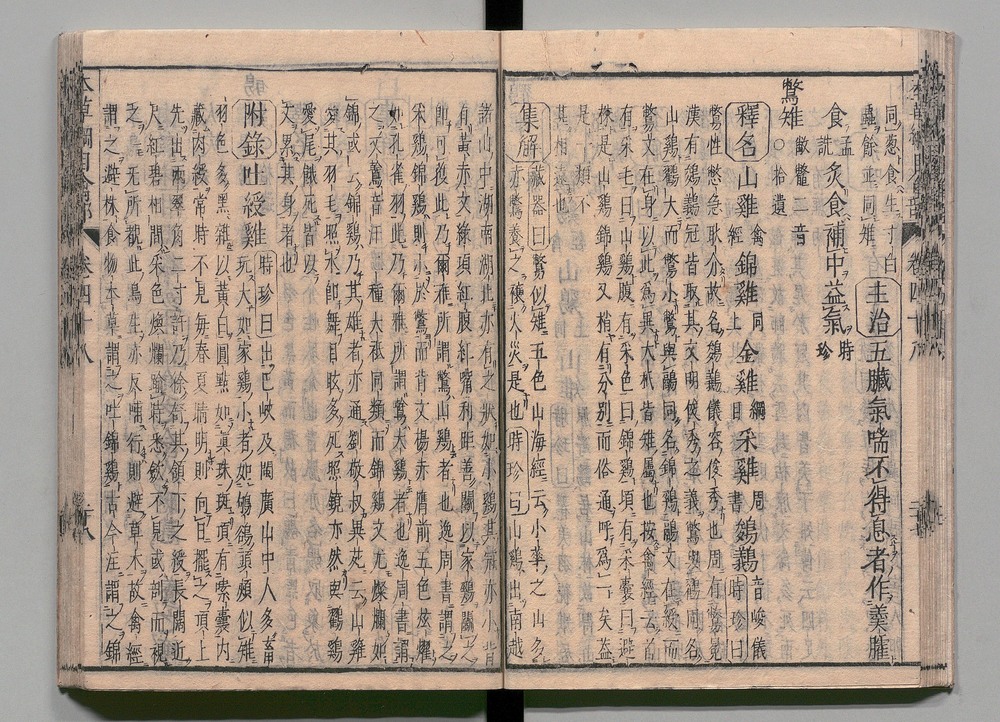 同葱食生寸白
蟲餘並同雉
主治五臟氣喘不得息者作羹臛
食孟詵
炙食補中益氣時珍
鷩雉
敝鼈二音
○拾遺
釋名山雞禽經錦雞同上金雞綱目采雞周書鵔鸃音峻儀時珍曰
鷩性憋急耿介故名鵔鸃儀容俊秀也周有鷩冕
漢有鵔鸃冠皆取其文明俊秀之義鷩與鵔鸃同名
山雞鸐大而鷩小鷩與鷊同名錦雞鷊文在綬而
鷩文在身以此爲異大抵皆雉屬也按禽經云首
有采毛曰山雞腹有采色曰錦雞項有采囊曰避
株是山雞錦雞又稍有分別而俗通呼爲一矣蓋
是一類不
其相遠也
集解藏器曰鷩似雉五色山海經云小華之山多
赤鷩養之禳火災是也時珍曰山雞出南越
諸山中湖南湖北亦有之狀如小雞其冠亦小背
有黃赤文綠項紅腹紅觜利距善鬬以家雞鬬之
即可獲此乃爾雅所謂鷩山雞者也逸周書謂之
采雞錦雞則小於鷩而背文揚赤膺前五色炫燿
如孔雀羽此乃爾雅所謂鶾天雞者也逸周書謂
之文鶾音汗二種大抵同類而錦雞文尤燦爛如
錦或云錦雞乃其雄者亦通劉敬叔異苑云山雞
愛其羽毛照水即舞目眩多死照鏡亦然與鶡雞
愛尾餓死皆以
文累其身者也
附錄吐綬雞時珍曰出巴峽及閩廣山中人多畜
玩大如家雞小者如鴝鵒頭頰似雉
羽色多黑雜以黃白圓點如眞珠斑項有嗉囊内
藏肉綬常時不見每春夏晴明則向日擺之頂上
先出兩翠角二寸許乃徐舒其頷下之綬長闊近
尺紅碧相間采色煥爛踰時悉斂不見或剖而視
之一無所覩此鳥生亦反哺行則避草木故禽經
謂之避株食物本草謂之吐錦雞古今注謂之錦
本草綱目禽部 卷四十八